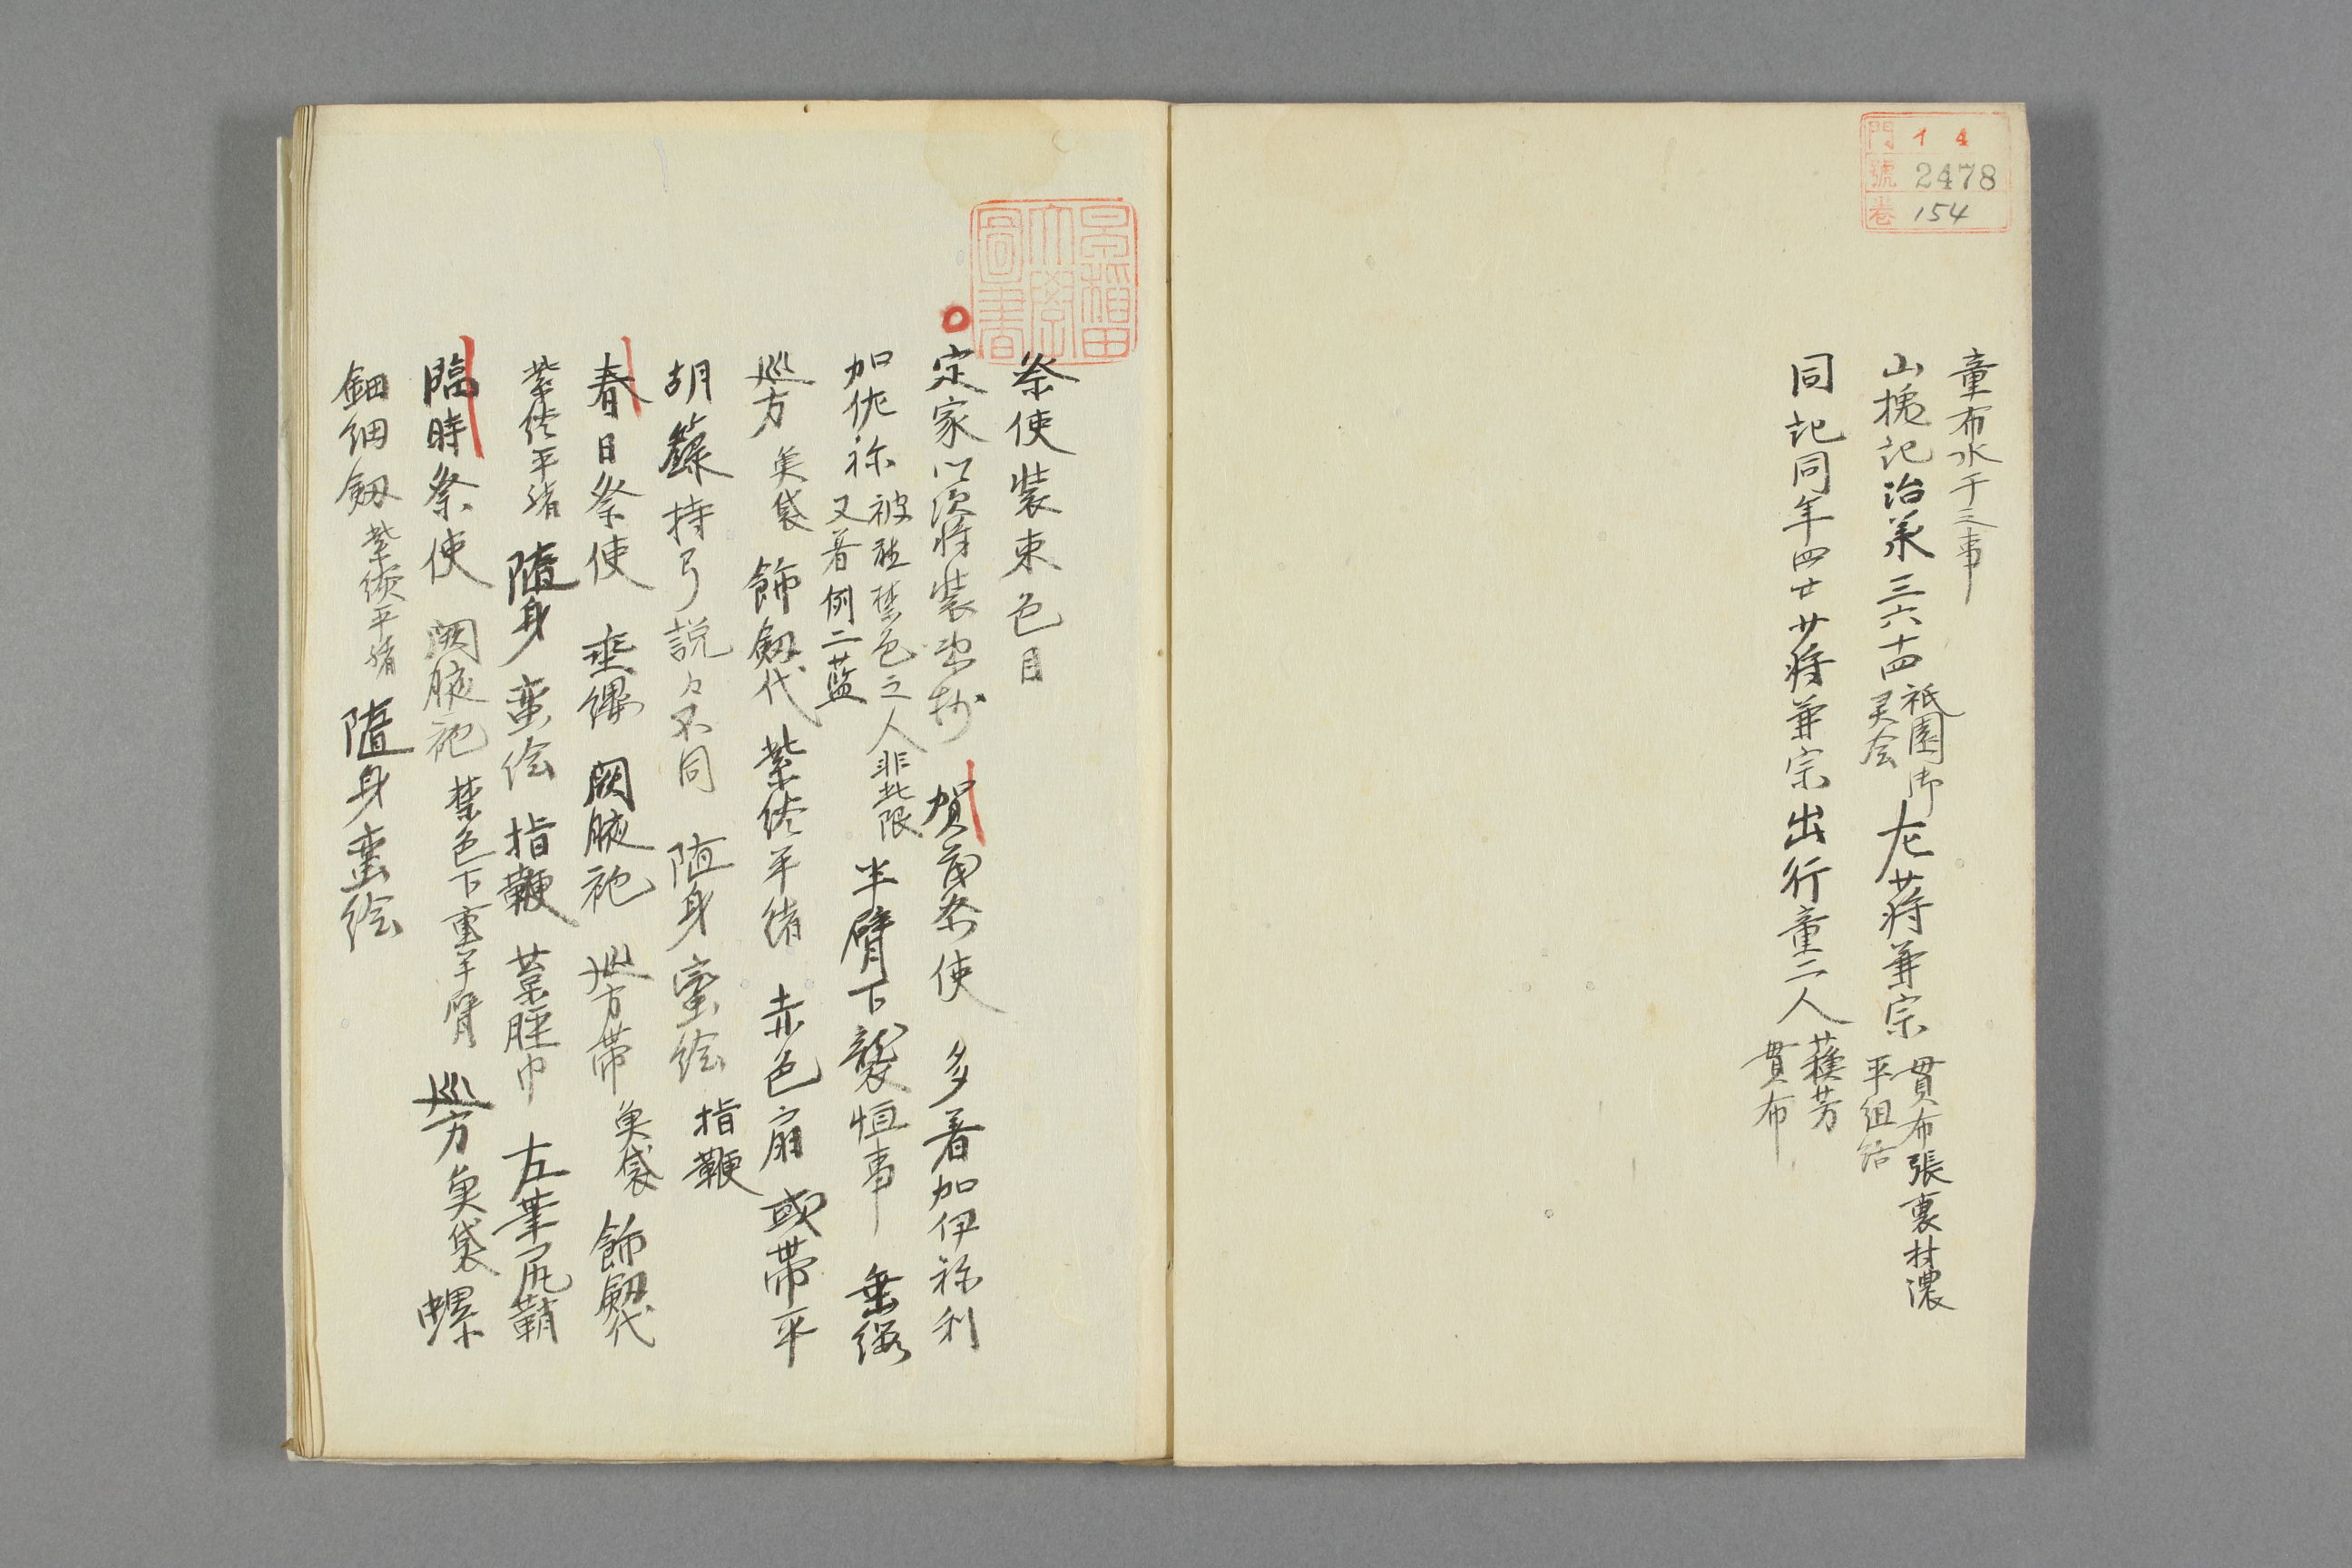 門 イ4
號 2478
卷 154
童布水干之事
山槐記治承三六十四 祇園御
灵会 左蒋兼宗 貫布張裏村濃
平組括
同記同年四廿 蒋兼宗出行童二人 蘓芳
貫布
早稲田
大學
圖書
祭使装束色目
定家次将装束抄 賀茂祭使 多着加伊祢利
加佐祢 被聴禁色之人非此限
又着例二藍 半臂下襲恒事 垂纓
巡方 魚袋 飾釼代 紫緂平緒 赤色扇 或帯平
胡籙持弓説々不同 随身蛮絵 指鞭
春日祭使 垂纓 闕腋袍 巡方帯 魚袋 飾釼代
紫緂平緒 随身蛮絵 指鞭 藁脛巾 左葦尻鞘
臨時祭使 闕腋袍 禁色下重半臂 巡方魚袋 螺
鈿細釼 紫緂平緒 随身蛮絵